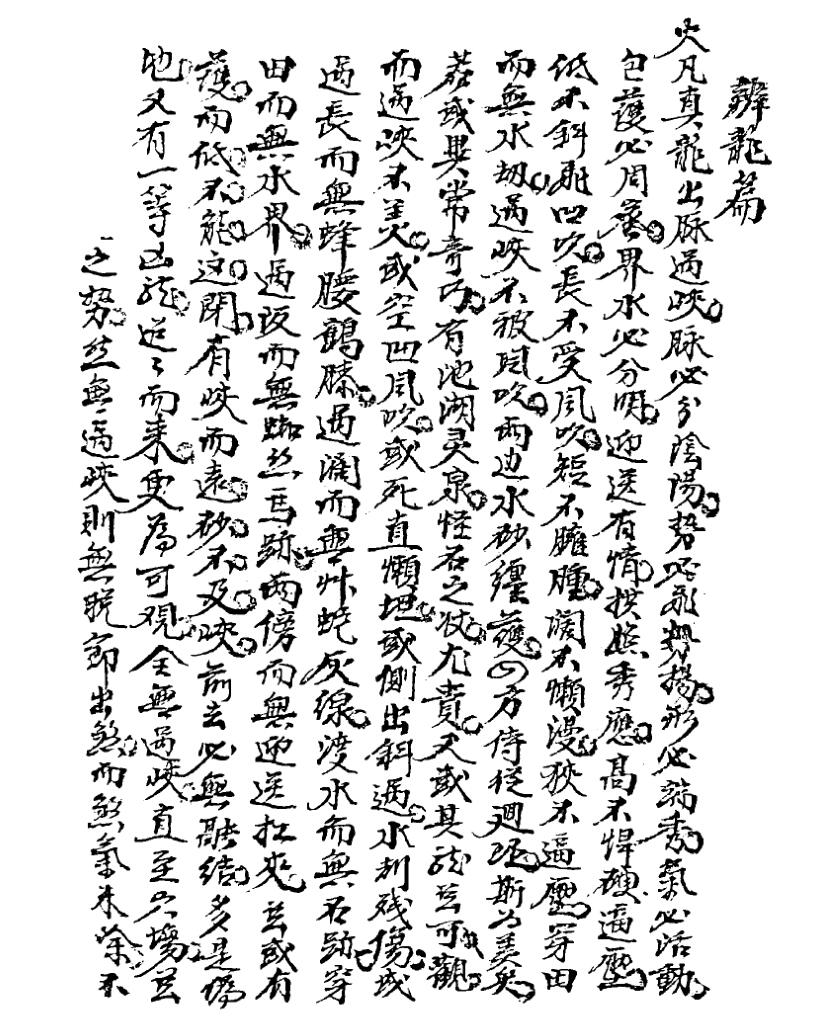 辨龍篇
夫凡真龍出脉過峽脉必分陰陽勢必飛舞揚形必端秀氣必活動
包護必周密界水必分明迎送有情拱照秀應高不悍硬逼壓
低不斜飛凹吹長不受風吹短不臃腫濶不懶漫狹不逼壓穿田
而無水劫過峽不被風吹兩边水砂纒護四方侍從廻环斯为美矣
若或異常奇巧有池湖灵泉怪石之状尤貴又或其龍岂可觀
而過峽不美或空凹風吹或死直懶坦或側出斜過水刺残傷或
過長而無蜂腰鶴膝過濶而無艸蛇灰線渡水而無石跡穿
田而無水界過阪而無蜘絲馬跡兩傍而無迎送扛夾岂或有
護而低不能遮閉有峽而遠砂不及峽前去必無融結多是塲
也又有一等凶龍迢々而来更為可观全無過峽直至穴塲岂
之势然無過峽則無脱卸出煞而煞氣未除不